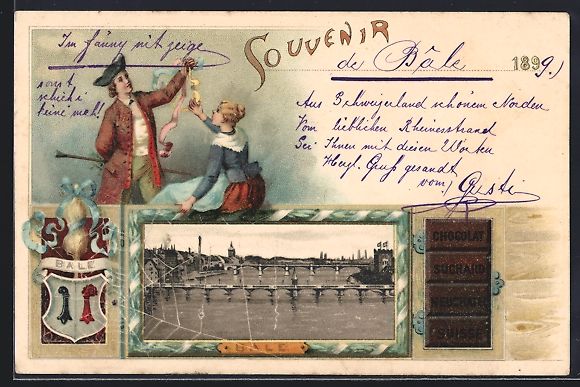 SOUVENIR
de Bâle 1899.)
Im Fanny nit zeige
sonst
schick i
keine meh!
Aus Schweizerland schönem Norden
Vom lieblichen Rheinesstrand
Sei Ihnen mit diesen Worten
Herzl. Gruß gesandt
vom Gusti
BALE
CHOCOLAT
SUCHARD
NEUCHATEL
SUISSE
BALE